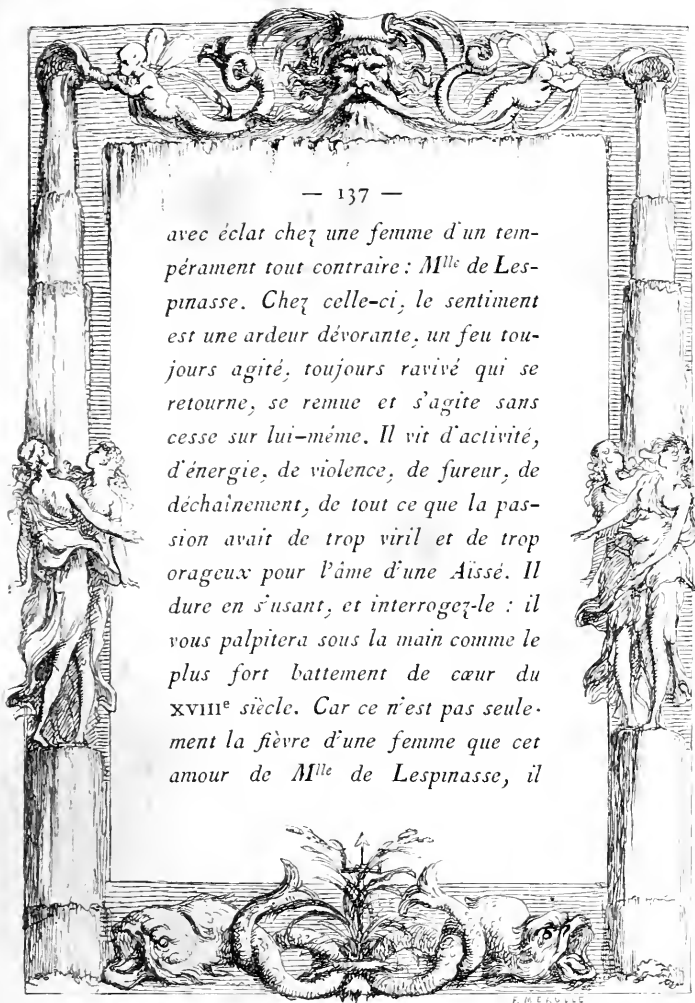 — 137 —
avec éclat chez une femme d'un tem-
pérament tout contraire : Mlle de Les-
pinasse. Chez celle-ci, le sentiment
est une ardeur dévorante, un feu tou-
jours agité, toujours ravivé qui se
retourne, se remue et s'agite sans
cesse sur lui-même. Il vit d'activité,
d'énergie, de violence, de fureur, de
déchaînement, de tout ce que la pas-
sion avait de trop viril et de trop
orageux pour l'âme d'une Aïssé. Il
dure en s'usant, et interrogez-le : il
vous palpitera sous la main comme le
plus fort battement de cœur du
XVIIIe siècle. Car ce n'est pas seule-
ment la fièvre d'une femme que cet
amour de Mlle de Lespinasse, il